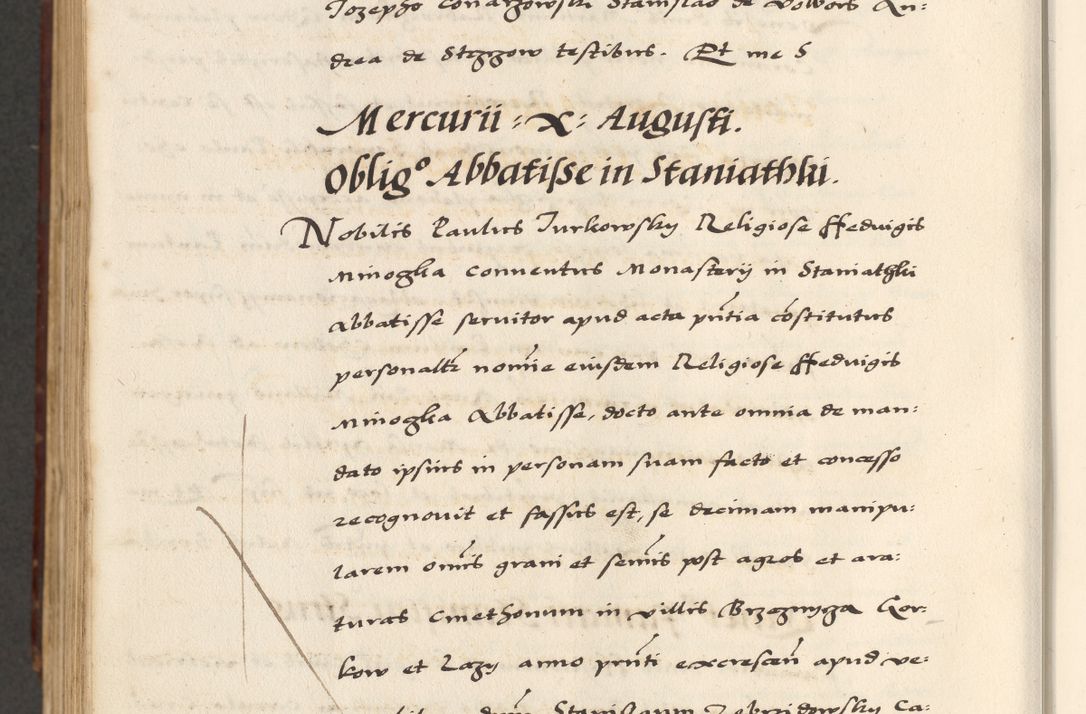 Iozepho Conarzowski Stanislao de
drea de Strzzow testibus. Et me S
Mercurii : X : Augusti.
Oblig° Abbatisse in Staniathki.
Nobilis Paulus Iurkowsky Religiose Hedvigis
Minoghа Conventus Monasterij in Staniathki
Abbatisse servitor apud acta pñtia cõstitutus
personalr nomĩe eiusdem Religiose Hedvigis
Minogha Abbatisse, docto ante omnia de man:
dato ipsius in personam suam facto et concesso
recognovit et fassus est, se decimam manipu:
larem omĩs grani et semĩs post agros et ara:
turas Cmethonum in villis Brzeznycza Gor:
kow et Lazy anno pñti excrescen̄ apud ve:
Stanislaum Zebrzidowsky Ca: